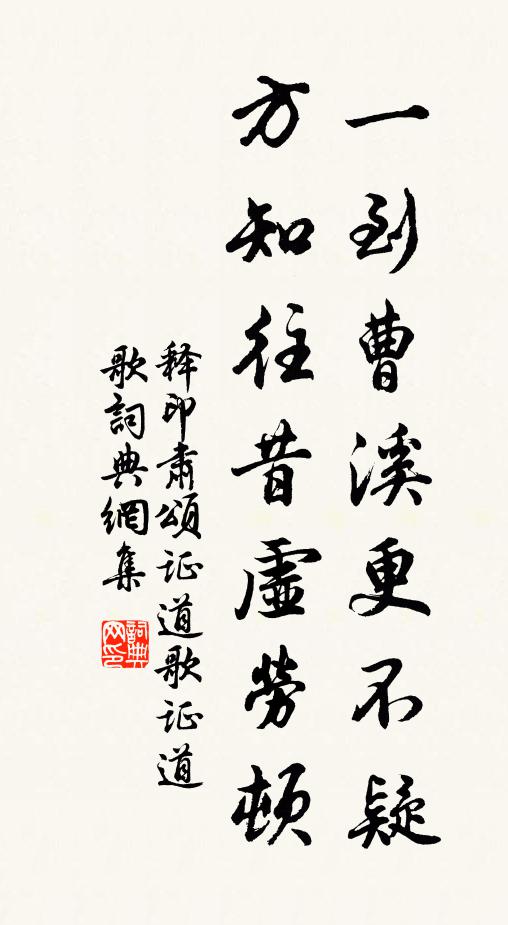 一到曹溪更不疑
方知往昔虛勞頓
释印肃頌证道歌证道
歌詞典網集
詞典网印